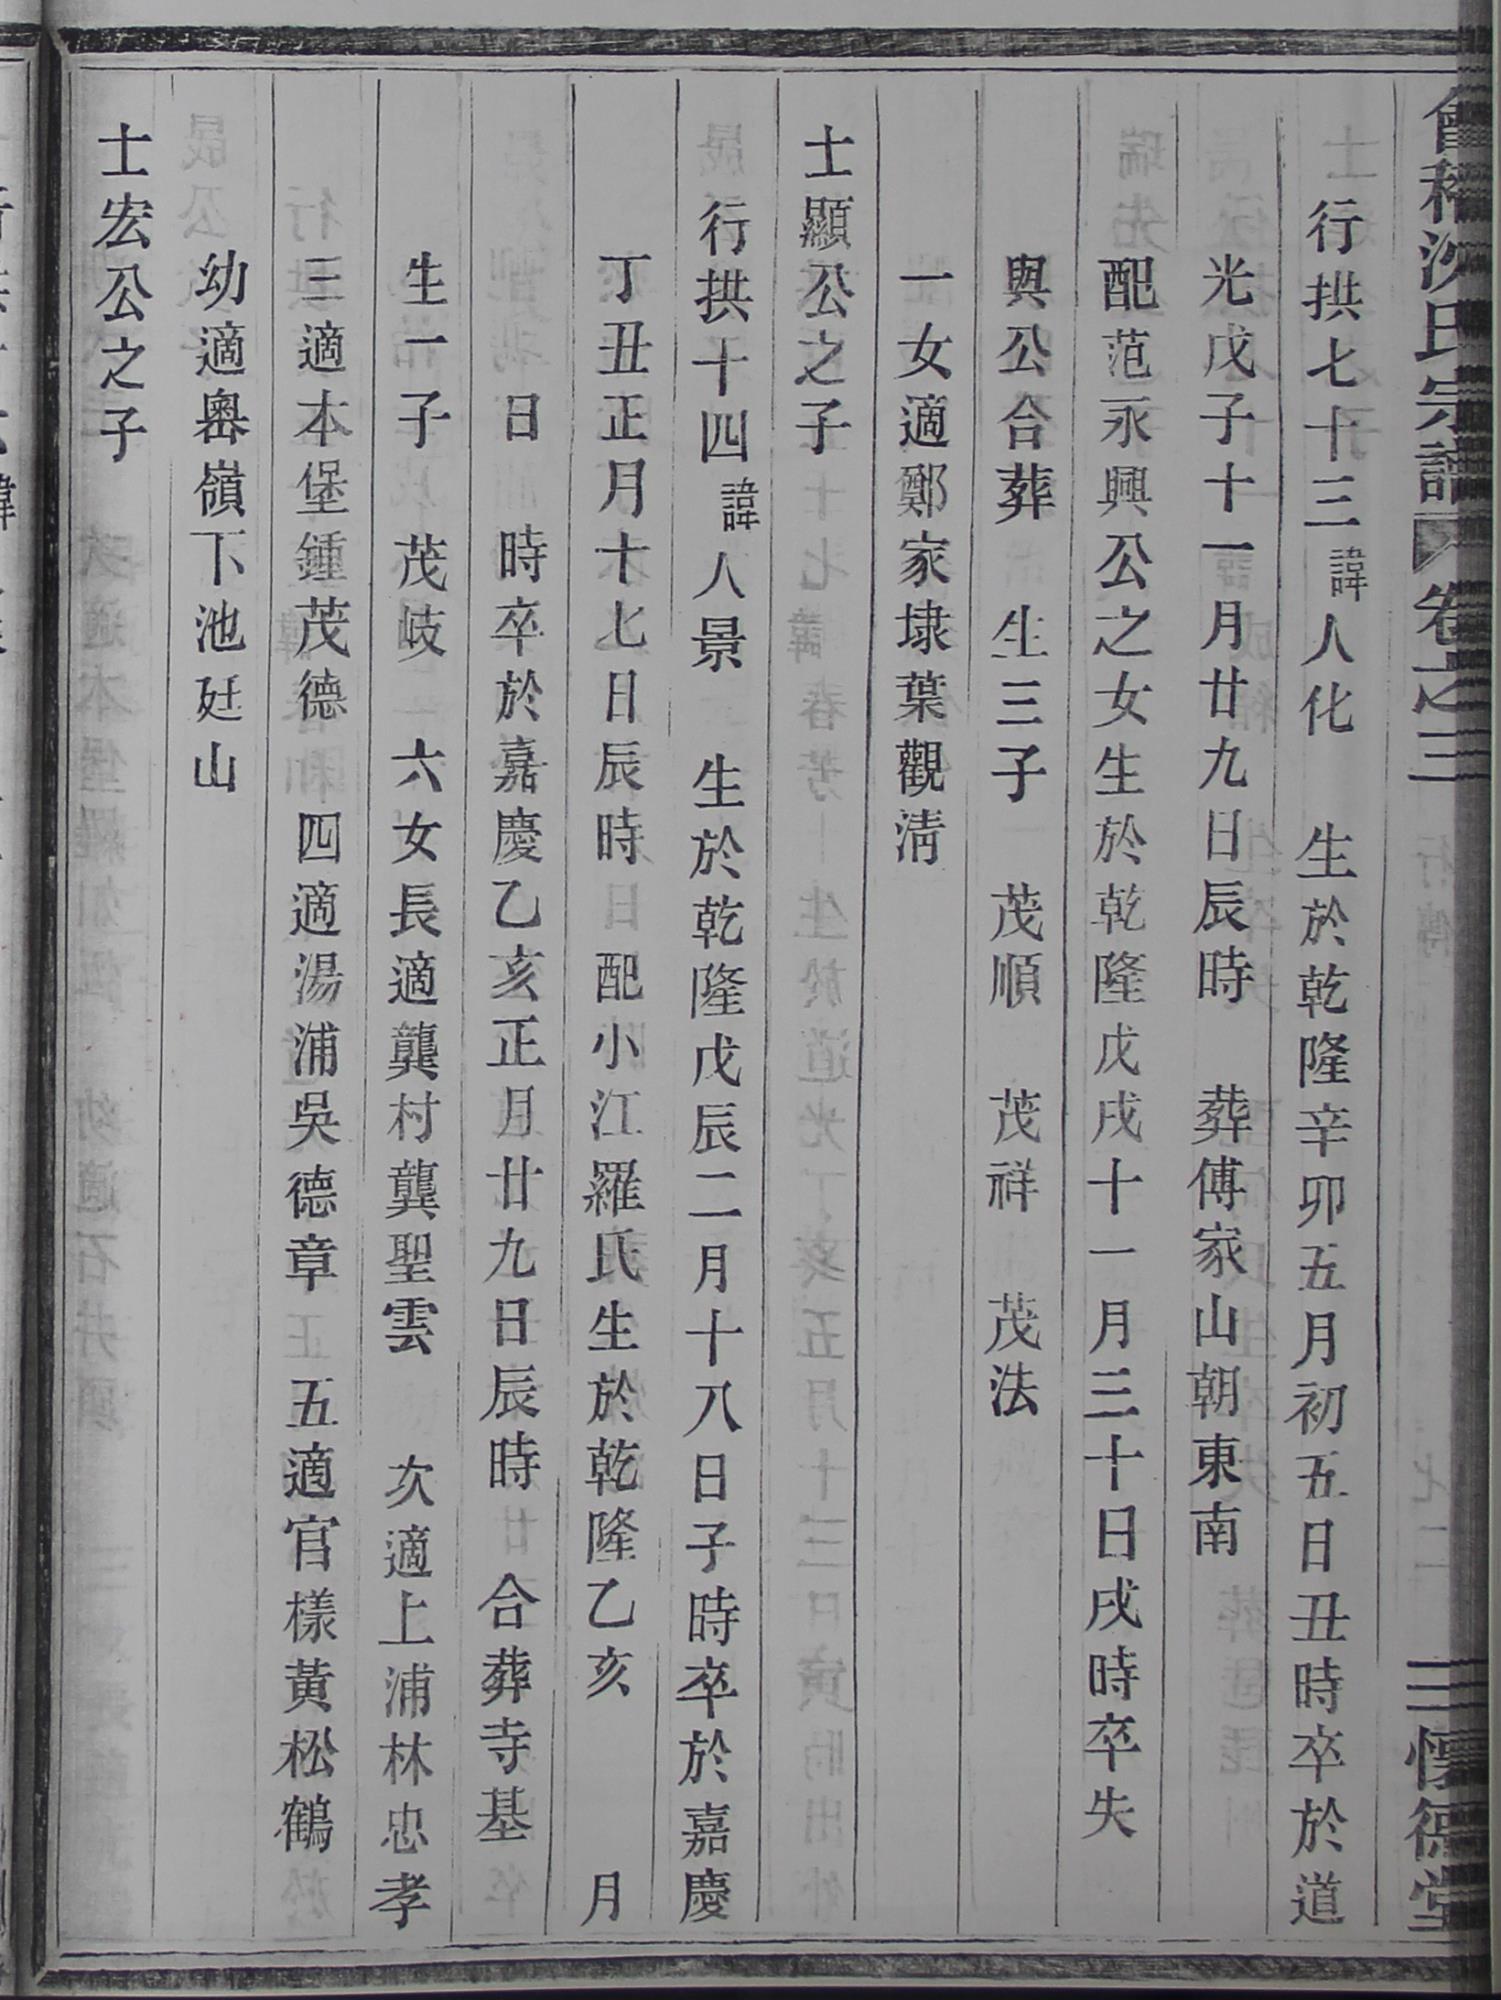 會稽沈氏宗譜 卷之三 懷德堂
行拱七十三諱人化 生於乾隆辛卯五月初五日丑時卒於道
光戊子十一月廿九日辰時 葬傅家山朝東南
配范永興公之女生於乾隆戊戌十一月三十日戌時卒失
與公合葬 生三子 茂順 茂祥 茂法
一女適鄭家埭葉觀淸
士顯公之子
行拱十四諱人景 生於乾隆戊辰二月十八日子時卒於嘉慶
丁丑正月十七日辰時 配小江羅氏生於乾隆乙亥 月
日 時卒於嘉慶乙亥正月廿九日辰時 合葬寺基
生一子 茂岐 六女長適龔村龔聖雲 次適上浦林忠孝
三適本堡鍾茂德 四適湯浦吳德章 五適官樣黃松鶴
幼適嶴嶺下池廷山
士宏公之子